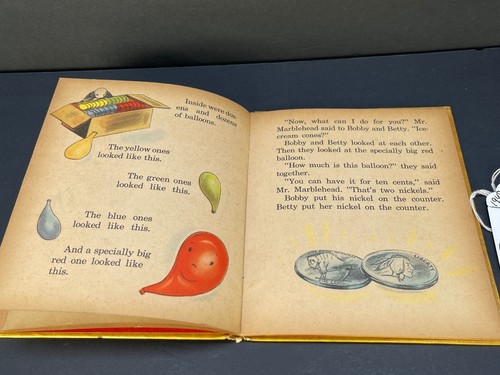 Inside were doz-
ens and dozens
of balloons.
The yellow ones
looked like this.
The green ones
looked like this.
The blue ones
looked like this.
And a specially big
red one looked like
this.
"Now, what can I do for you?" Mr.
Marblehead said to Bobby and Betty. "Ice-
cream cones?"
Bobby and Betty looked at each other.
Then they looked at the specially big red
balloon.
"How much is this balloon?" they said
together.
"You can have it for ten cents," said
Mr. Marblehead. "That's two nickels."
Bobby put his nickel on the counter.
Betty put her nickel on the counter.